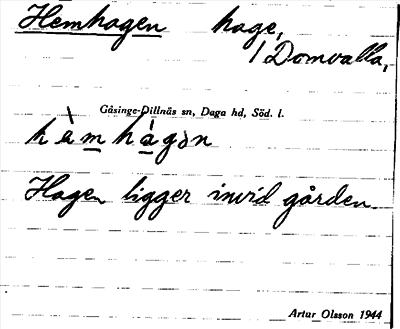 Hemhagen hage,
/ Domvalla,
Gåsinge-Dillnäs sn, Daga hd, Söd. l.
hèmhàgən
Hagen ligger invid gården.
Artur Olsson 1944